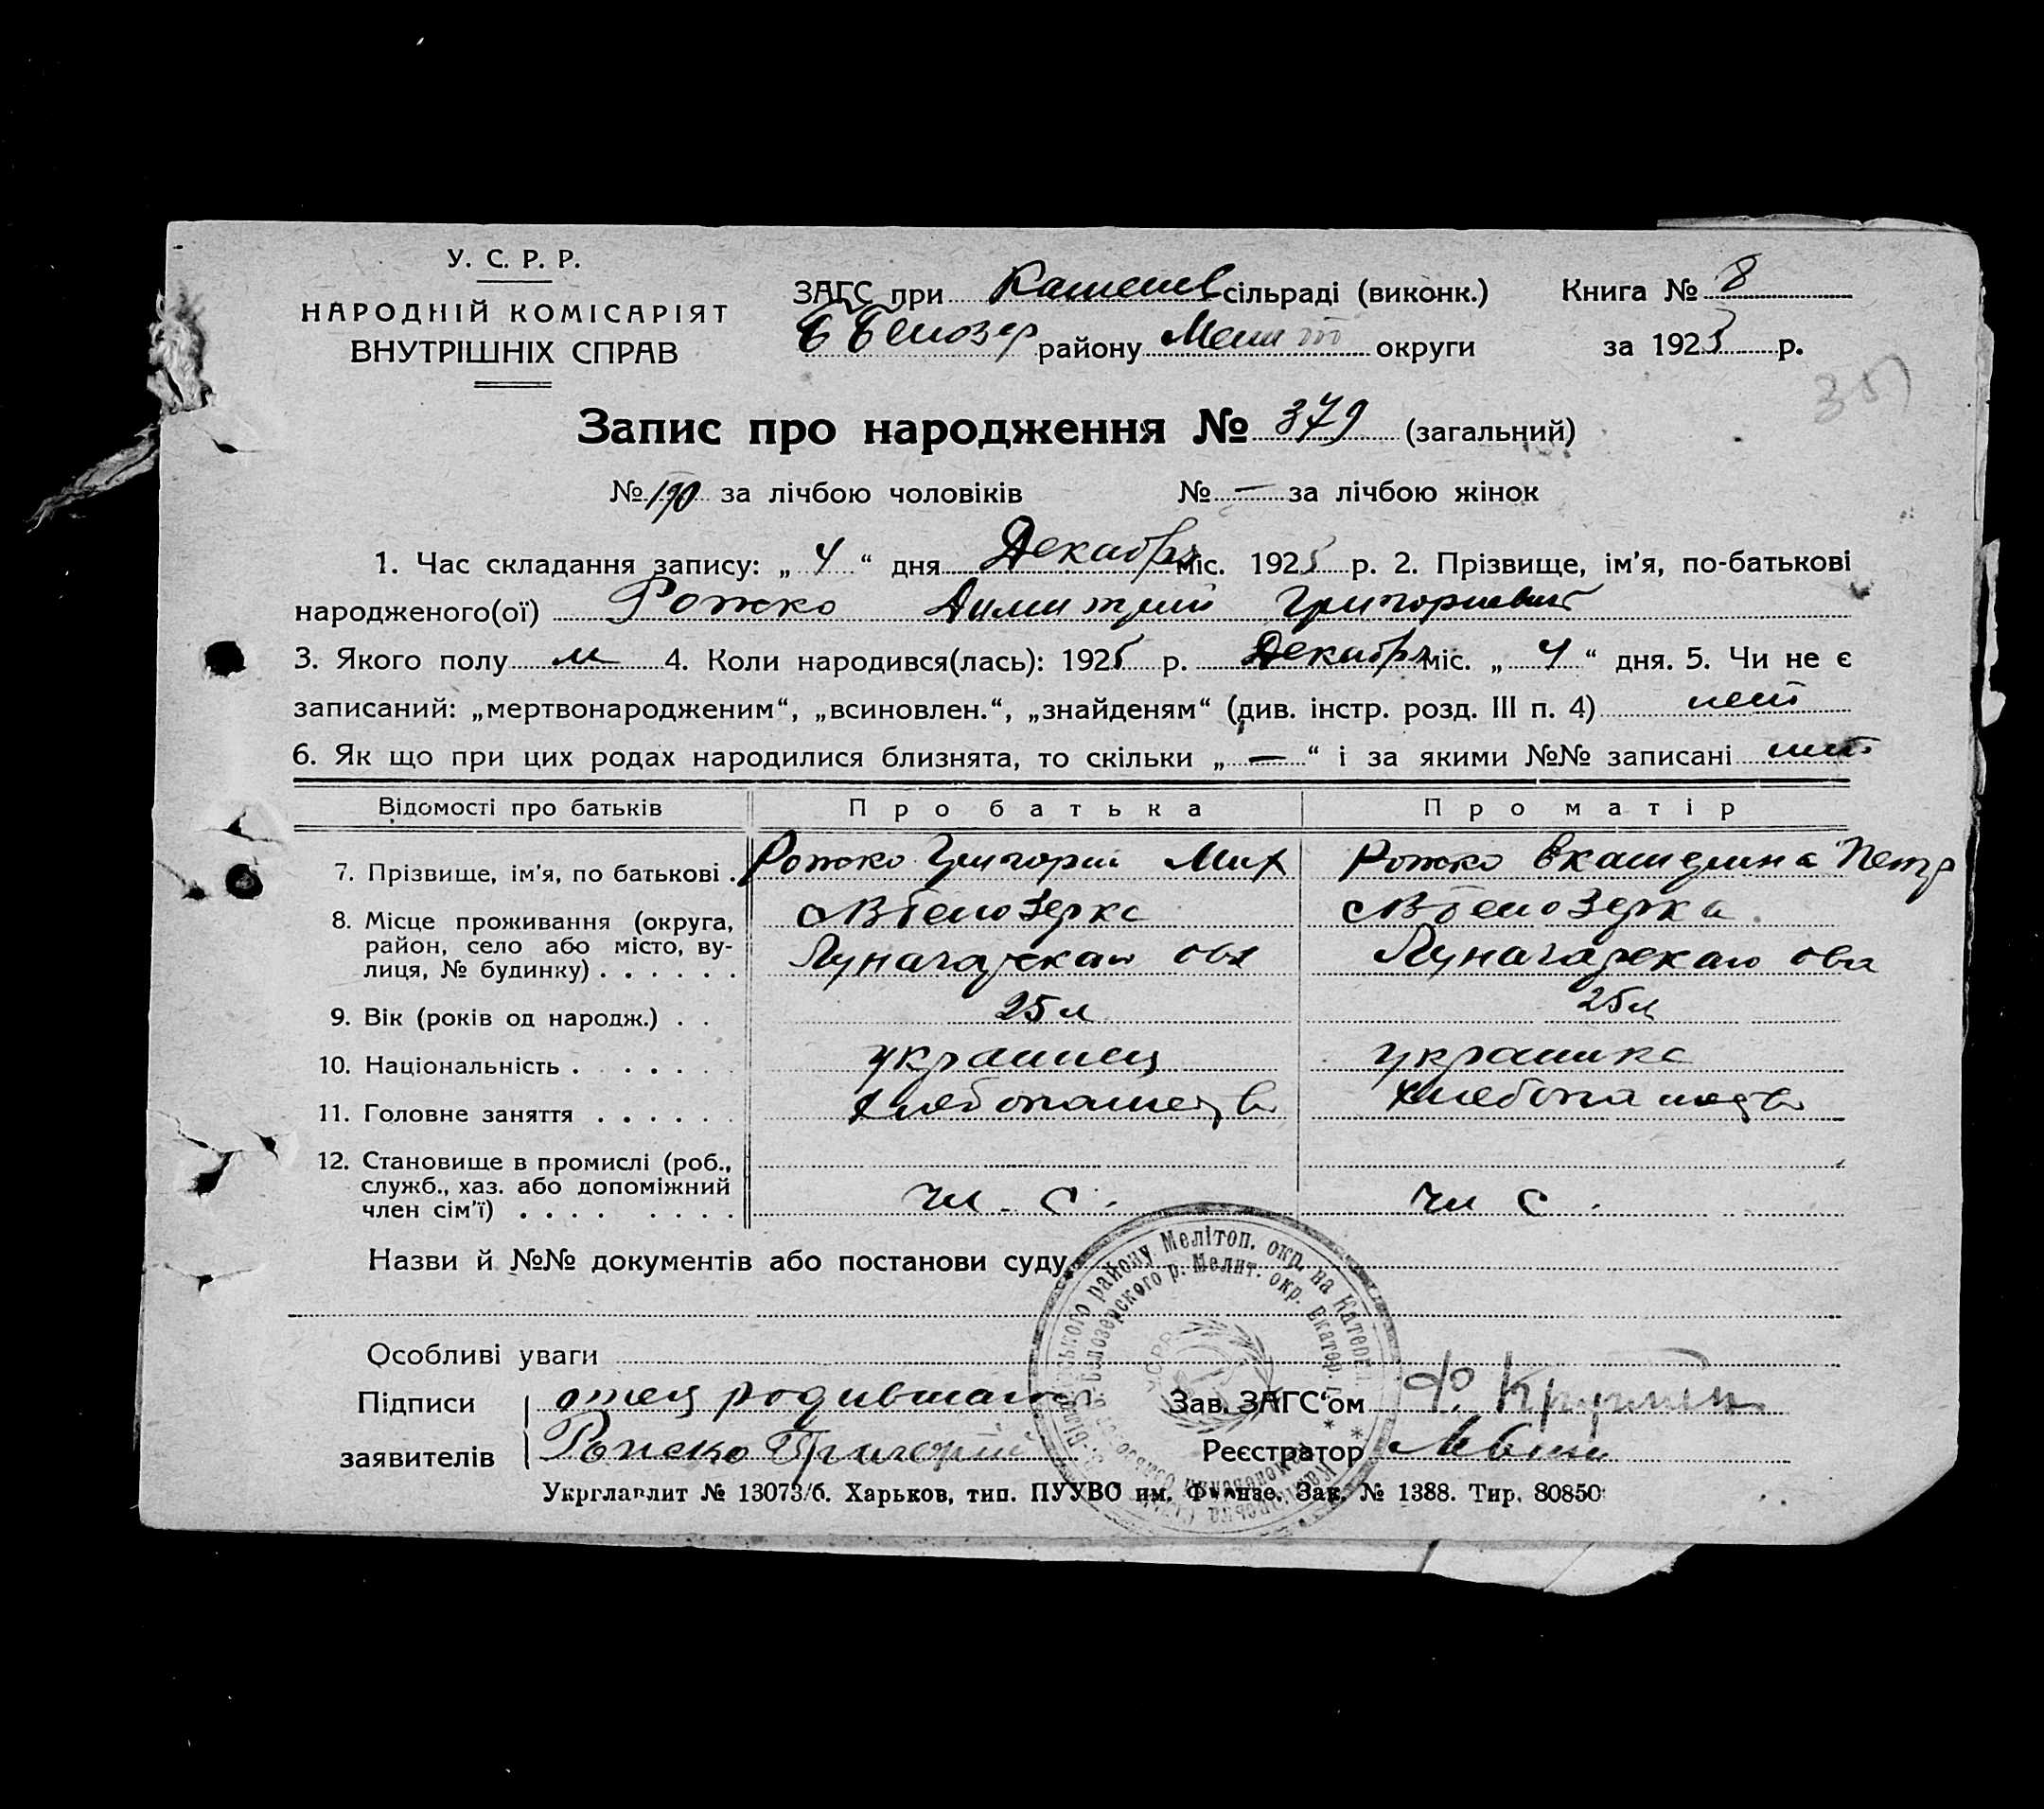 У. С. Р. Р.
НАРОДНІЙ КОМІСАРІЯТ
ВНУТРІШНІХ СПРАВ
ЗАГС при Каменев сільраді (виконк.)
Б Белозер району Мелит округи
Книга № 8
за 1925 р.
Запис про народження № 379 (загальний)
№ 190 за лічбою чоловіків № — за лічбою жінок
1. Час складання запису: „ 4 “ дня Декабря міс. 1925 р. 2. Прізвище, ім’я, по-батькові
народженого(ої) Рожко Димитрий Григориевич
3. Якого полу м 4. Коли народився(лась): 1925 р. Декабря міс. „ 4 “ дня. 5. Чи не є
записаний: „мертвонародженим“, „всиновлен.“, „знайденям“ (див. інстр. розд. III п. 4) нет
6. Як що при цих родах народилися близнята, то скільки „ — “ і за якими №№ записані нет
Відомості про батьків Про батька Про матір
7. Прізвище, ім’я, по батькові . Рожко Григорий Мих Рожко Екатерина Петр
8. Місце проживання (округа,
район, село або місто, ву-
лиця, № будинку) . . . . . .
Белозерка Белозерка
Луначарскаго Луначарскаго
9. Вік (років од народж.) . . 25 л 25 л
10. Національність . . . . . . украинец украинка
11. Головне заняття . . . . . . хлебопашество хлебопашество
12. Становище в промислі (роб.,
служб., хаз. або допоміжний
член сім’ї) . . . . . . . .
чл. с. чл с.
Назви й №№ документів або постанови суду
Особливі уваги
Підписи отец родившаго Зав. ЗАГС‘ом
заявителів Рожко Григорий Реєстратор
Укрглавлит № 13073/б. Харьков, тип. ПУУВО им. Фрунзе. Зак. № 1388. Тир. 80850
району Мелітоп. окр. на Катерин
Белозерского р. Мелит. окр. Екатер.
УСРР